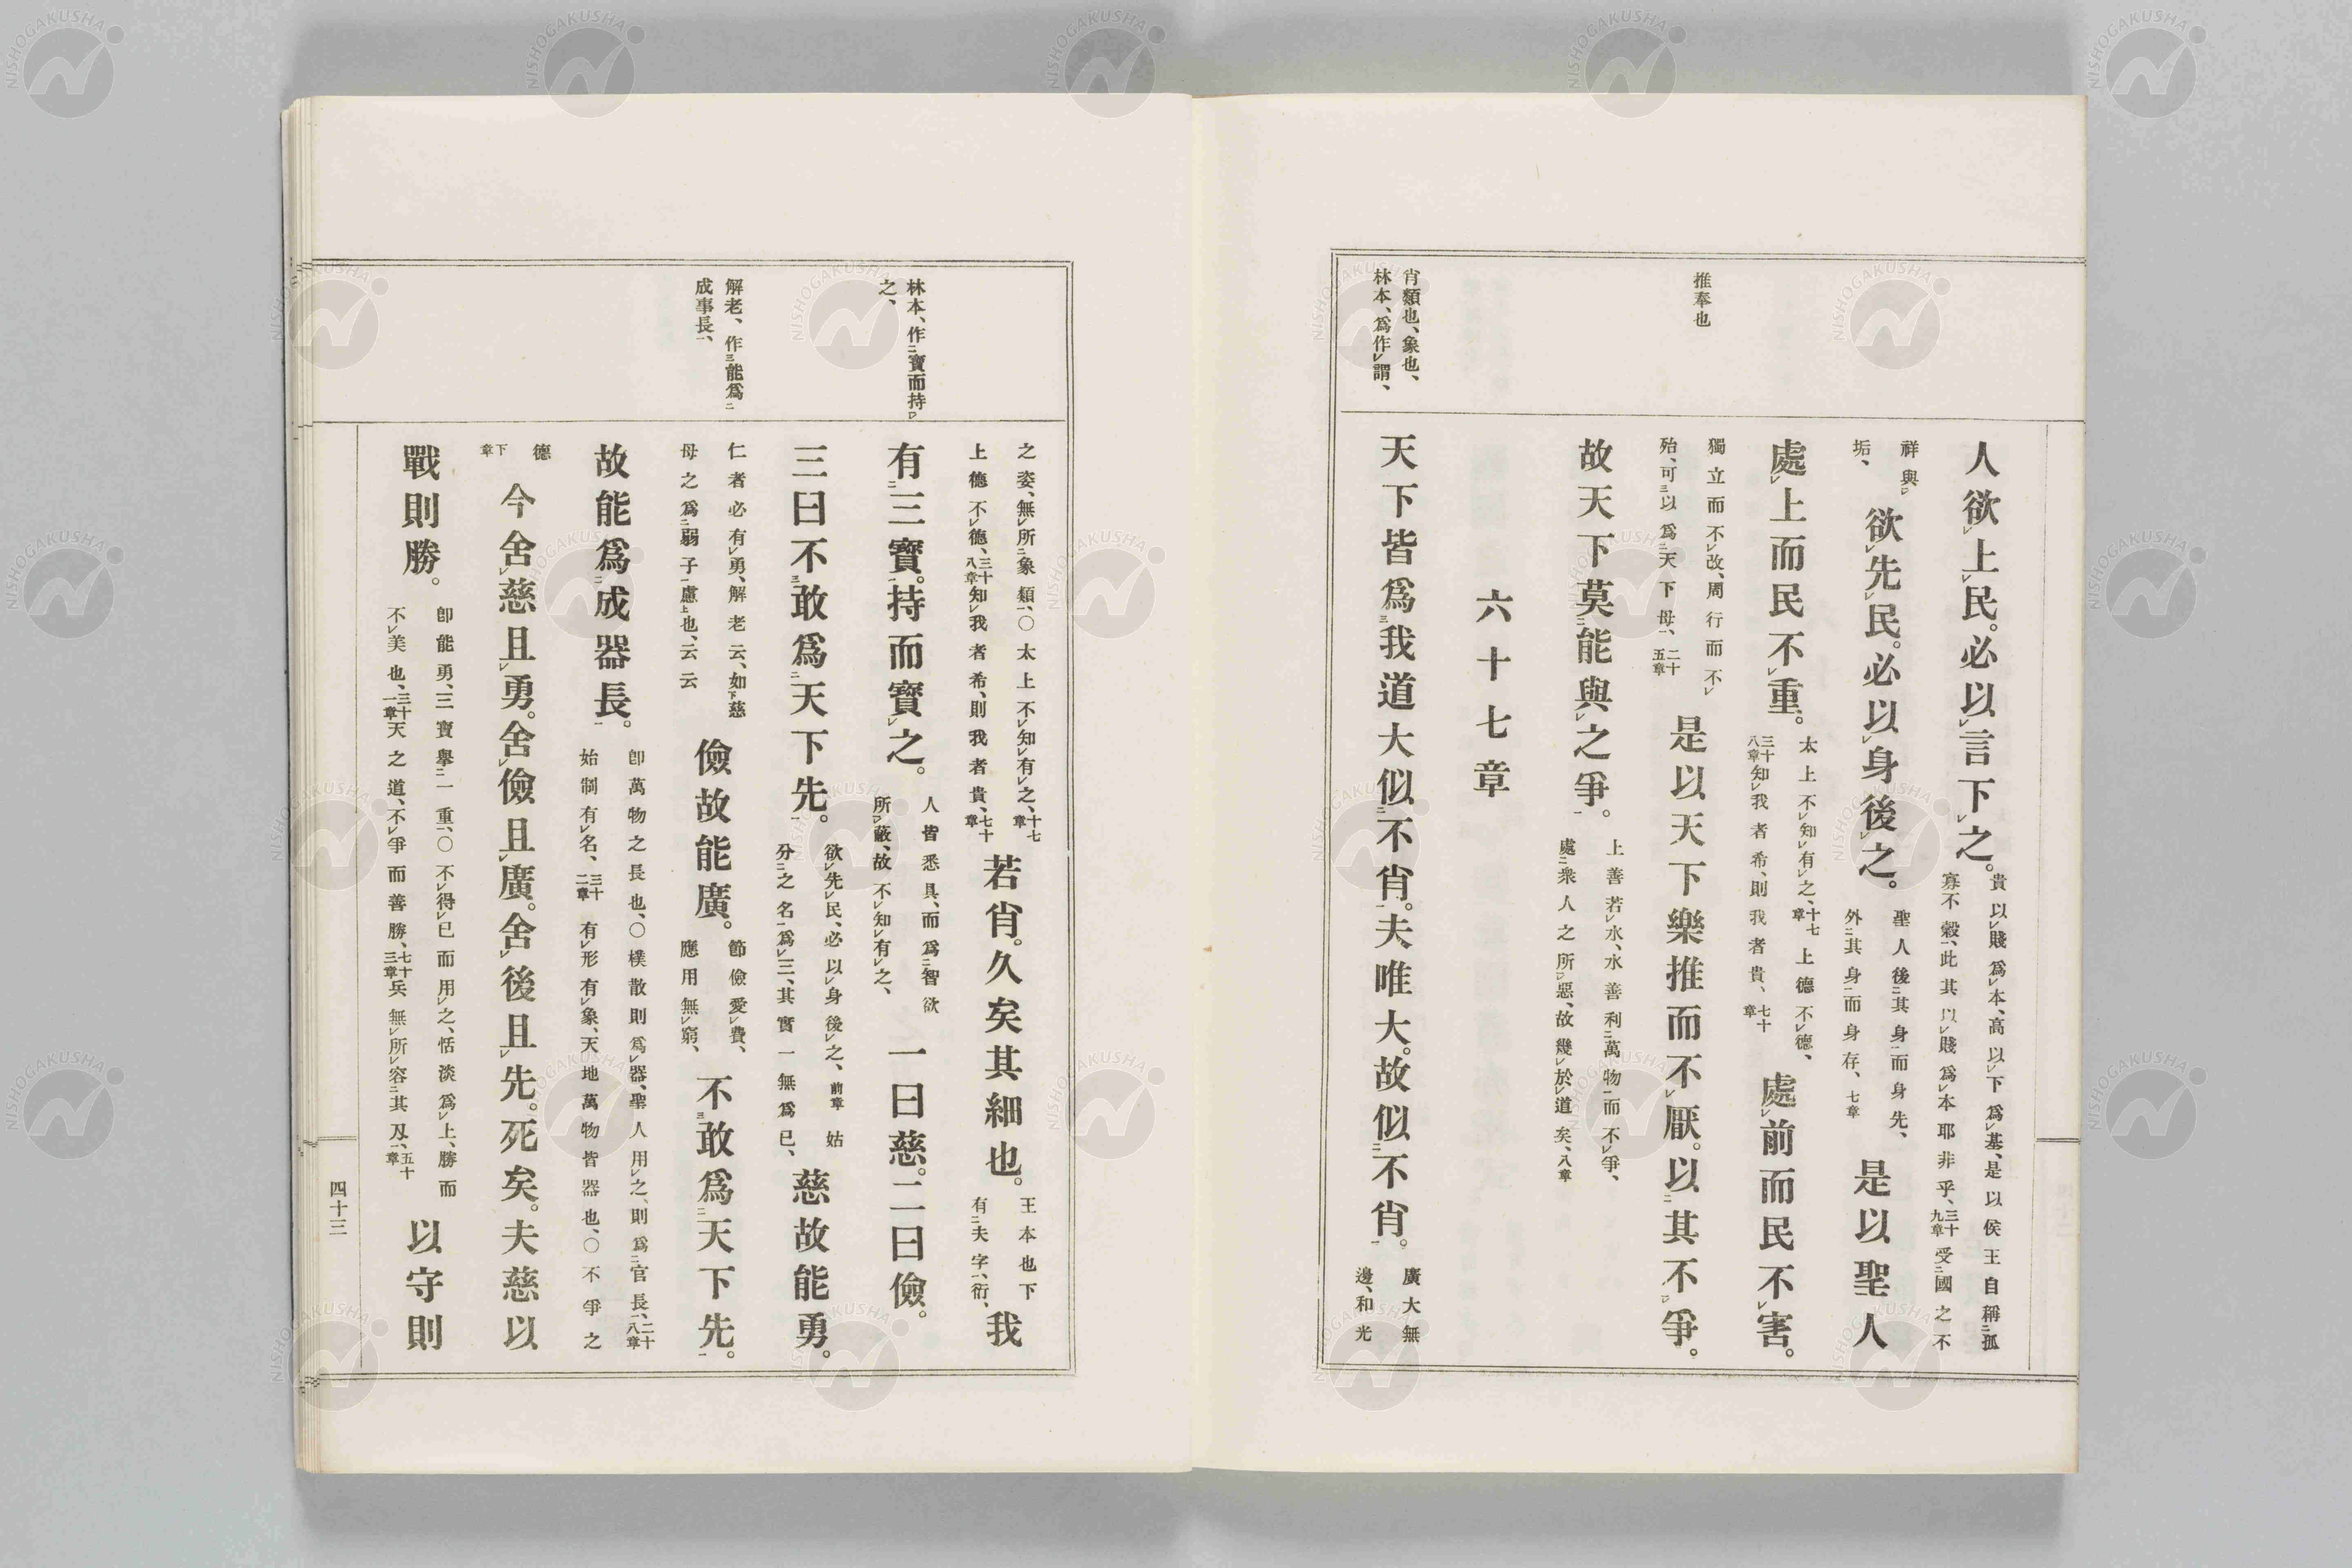 推奉也
肖類也、象也、
林本、爲作謂、
人欲上民。必以言下之。
貴以賤爲本、高以下爲基、是以侯王自稱孤
寡不穀、此其以賤爲本耶非乎、三十九章受國之不
祥與
垢、
欲先民。必以身後之。
聖人後其身而身先、
外其身而身存、七章
是以聖人
處上而民不重。
太上不知有之、十七章上德不德、
三十八章知我者希、則我者貴、七十章
處前而民不害。
獨立而不改、周行而不
殆、可以爲天下母、二十五章
是以天下樂推而不厭。以其不爭。
故天下莫能與之爭。
上善若水、水善利萬物而不爭、
處衆人之所惡、故幾於道矣、八章
六十七章
天下皆爲我道大似不肖。夫唯大。故似不肖。
廣大無
邊、和光
林本、作寶而持
之、
解老、作能爲
成事長、
之姿、無所象類、〇太上不知有之、十七章
上德不德、三十八章知我者希、則我者貴、七十章
若肖。久矣其細也。
王本也下
有夫字、衍、
我
有三寶。持而寶之。
人皆悉具、而爲智欲
所蔽、故不知有之、
一曰慈。二曰儉。
三曰不敢爲天下先。
欲先民、必以身後之、前章姑
分之名爲三、其實一無爲已、
慈故能勇。
仁者必有勇、解老云、如慈
母之爲弱子慮也、云云
儉故能廣。
節儉愛費、
應用無窮、
不敢爲天下先。
故能爲成器長。
卽萬物之長也、〇樸散則爲器、聖人用之、則爲官長、二十八章
始制有名、三十二章有形有象、天地萬物皆器也、〇不爭之
德
下章
今舍慈且勇。舍儉且廣。舍後且先。死矣。夫慈以
戰則勝。
卽能勇、三寶擧一重、〇不得已而用之、恬淡爲上、勝而
不美也、三十一章天之道、不爭而善勝、七十三章兵無所容其刄、五十章
以守則
四十三